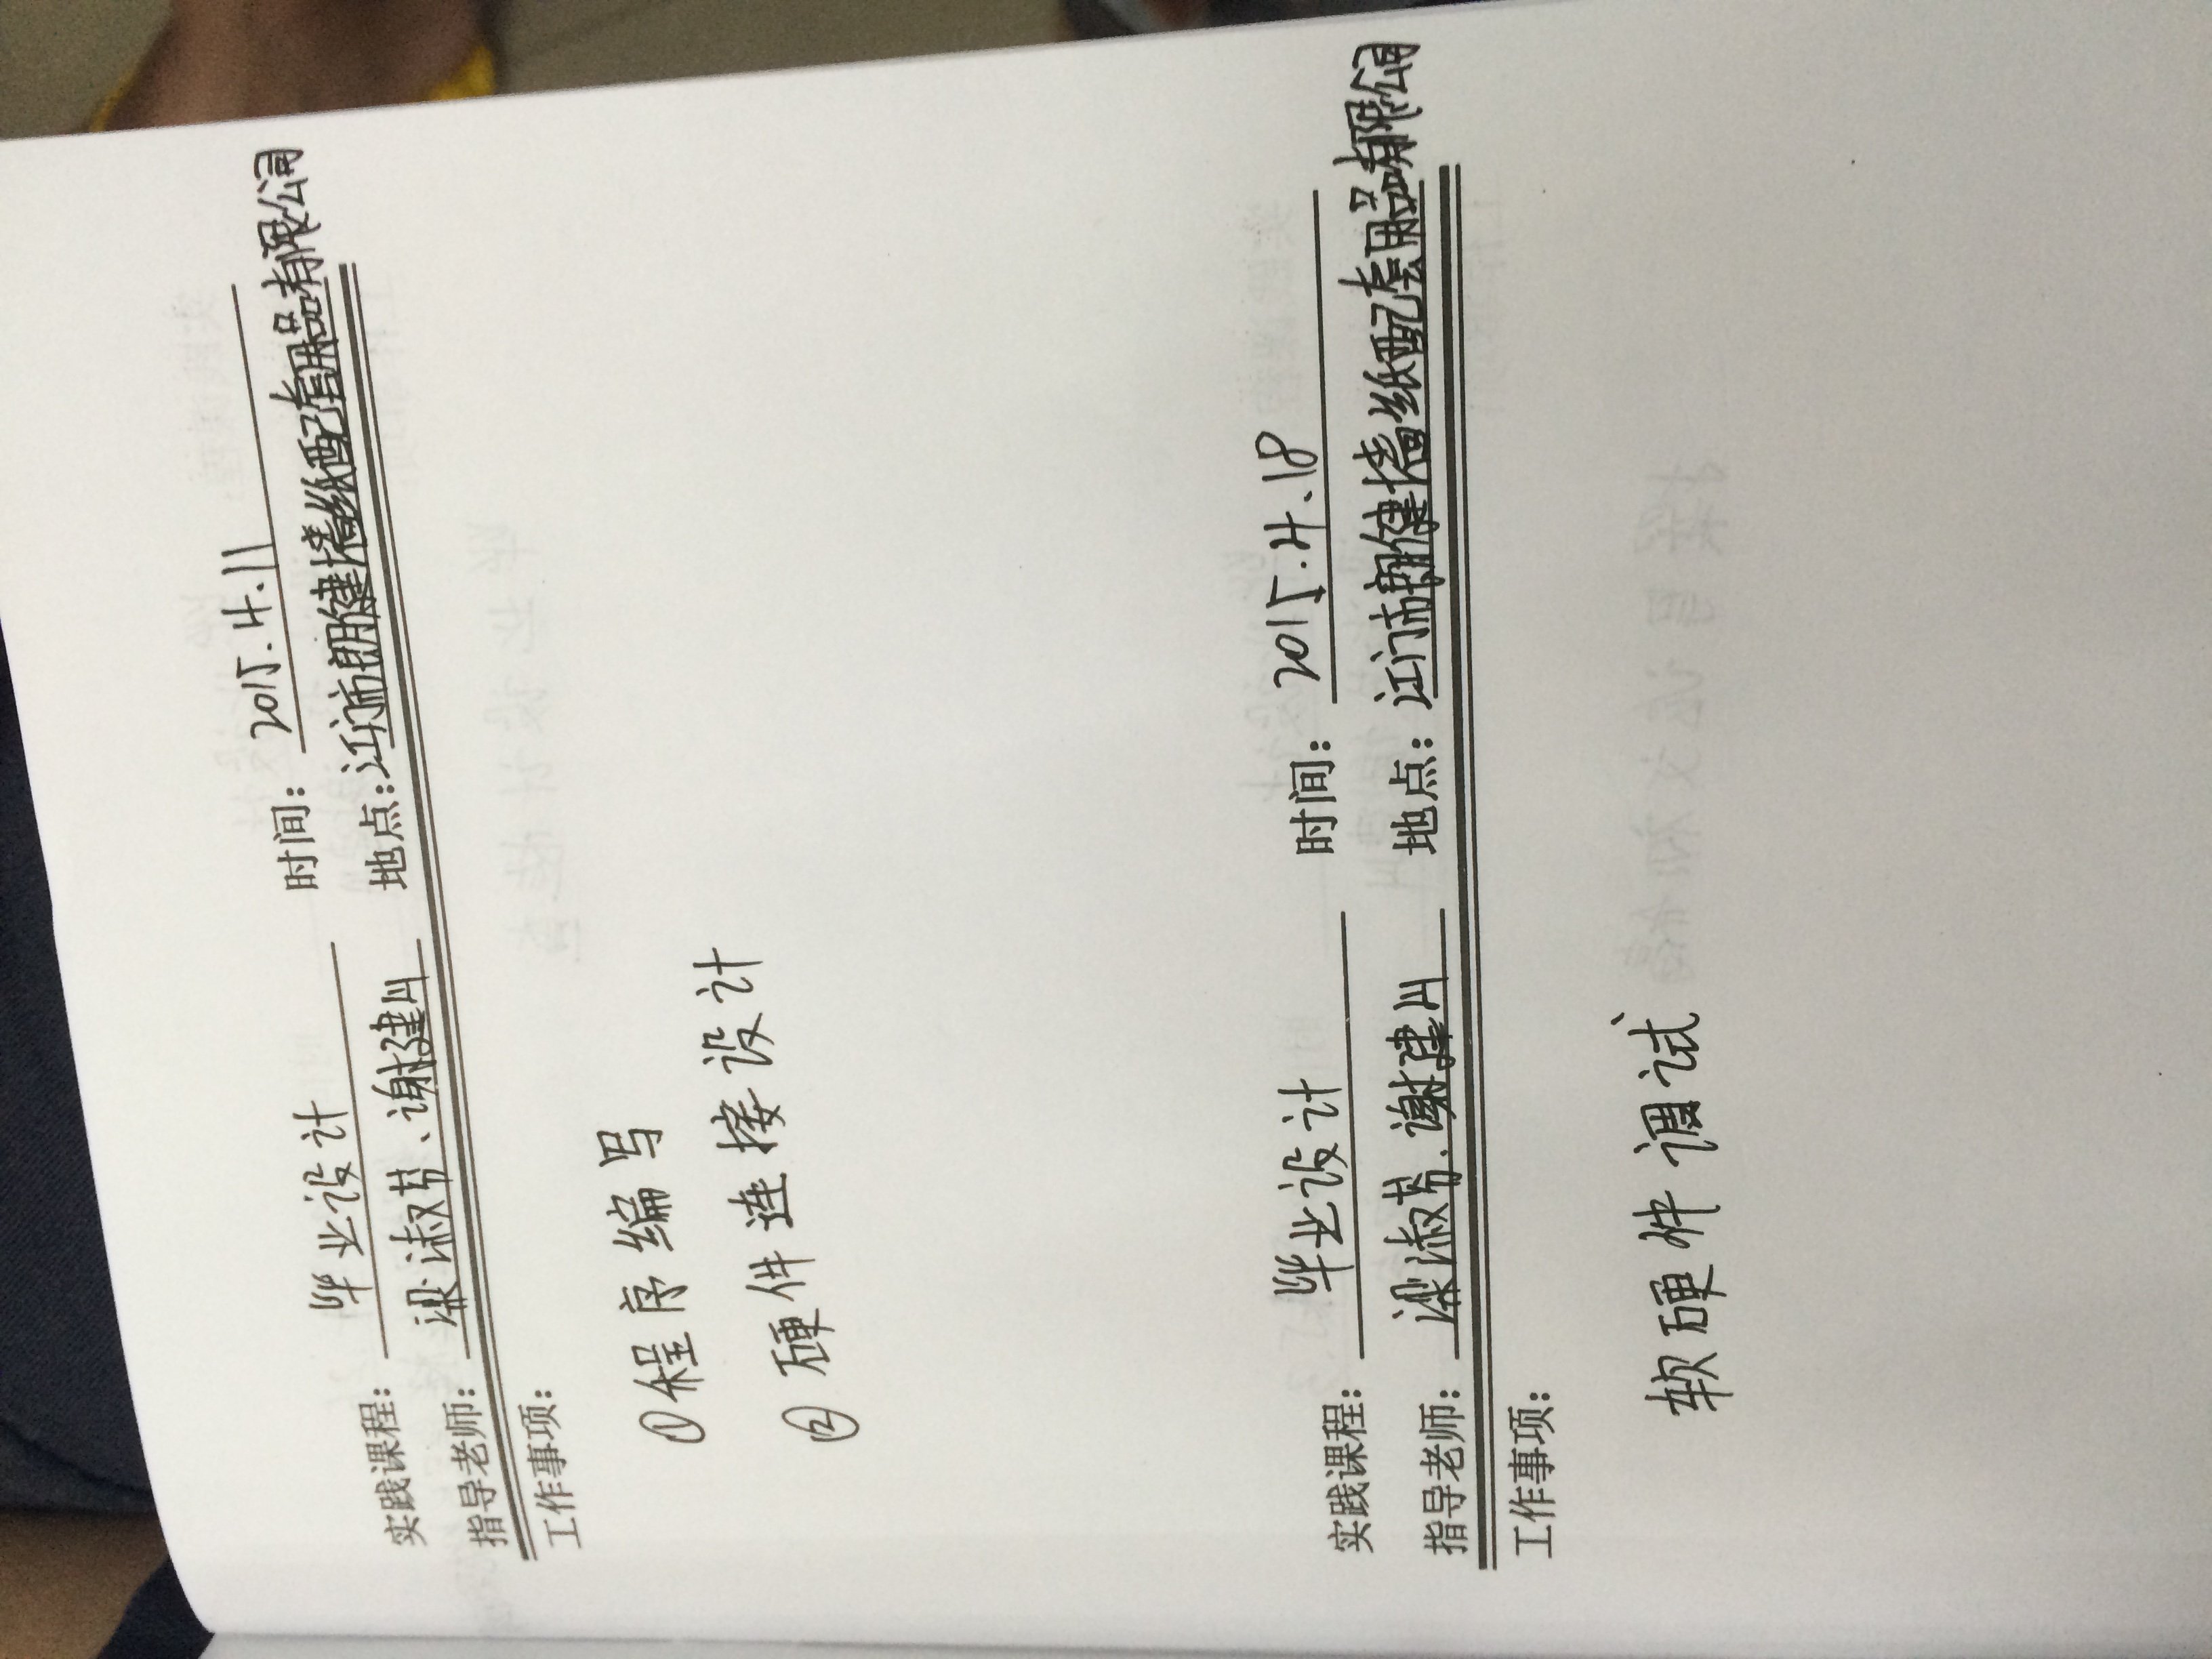 实践课程: 毕业设计 时间: 2015.4.11
指导老师: 梁淑芬、谢建川 地点: 江门市朗健墙纸配套用品有限公司
工作事项:
①程序编写
②硬件连接设计
实践课程: 毕业设计 时间: 2015.4.18
指导老师: 梁淑芬、谢建川 地点: 江门市朗健墙纸配套用品有限公司
工作事项:
软硬件调试